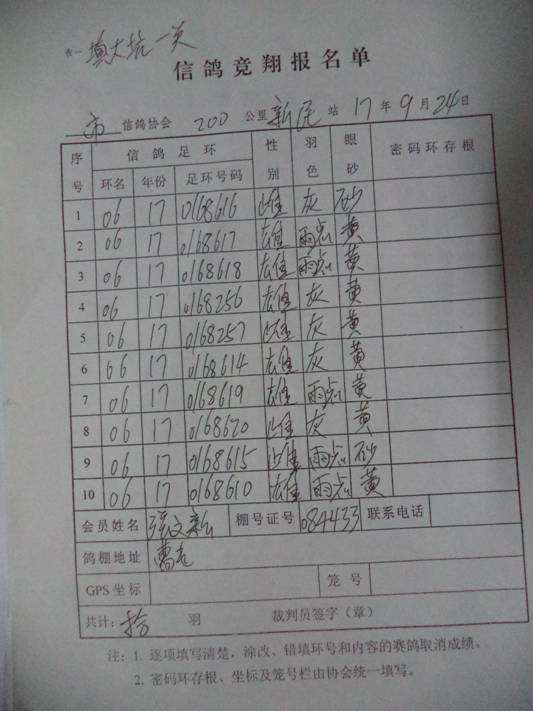 表一 填大坑一关
信鸽竞翔报名单
市 信鸽协会 200 公里 新民 站 17 年 9 月 24 日
序号 信鸽足环 性别 羽色 眼砂 密码环存根
环名 年份 足环号码
1 06 17 0168616 雌 灰 砂
2 06 17 0168617 雄 雨点 黄
3 06 17 0168618 雄 雨点 黄
4 06 17 0168256 雄 灰 黄
5 06 17 0168257 雌 灰 黄
6 06 17 0168614 雄 灰 黄
7 06 17 0168619 雄 雨点 黄
8 06 17 0168620 雌 灰 黄
9 06 17 0168615 雌 雨点 砂
10 06 17 0168610 雄 雨点 黄
会员姓名 张文新 棚号证号 084433 联系电话
鸽棚地址
GPS坐标 笼号
共计: 拾 羽 裁判员签字(章)
注:1. 逐项填写清楚,涂改、错填环号和内容的赛鸽取消成绩。
2. 密码环存根、坐标及笼号栏由协会统一填写。